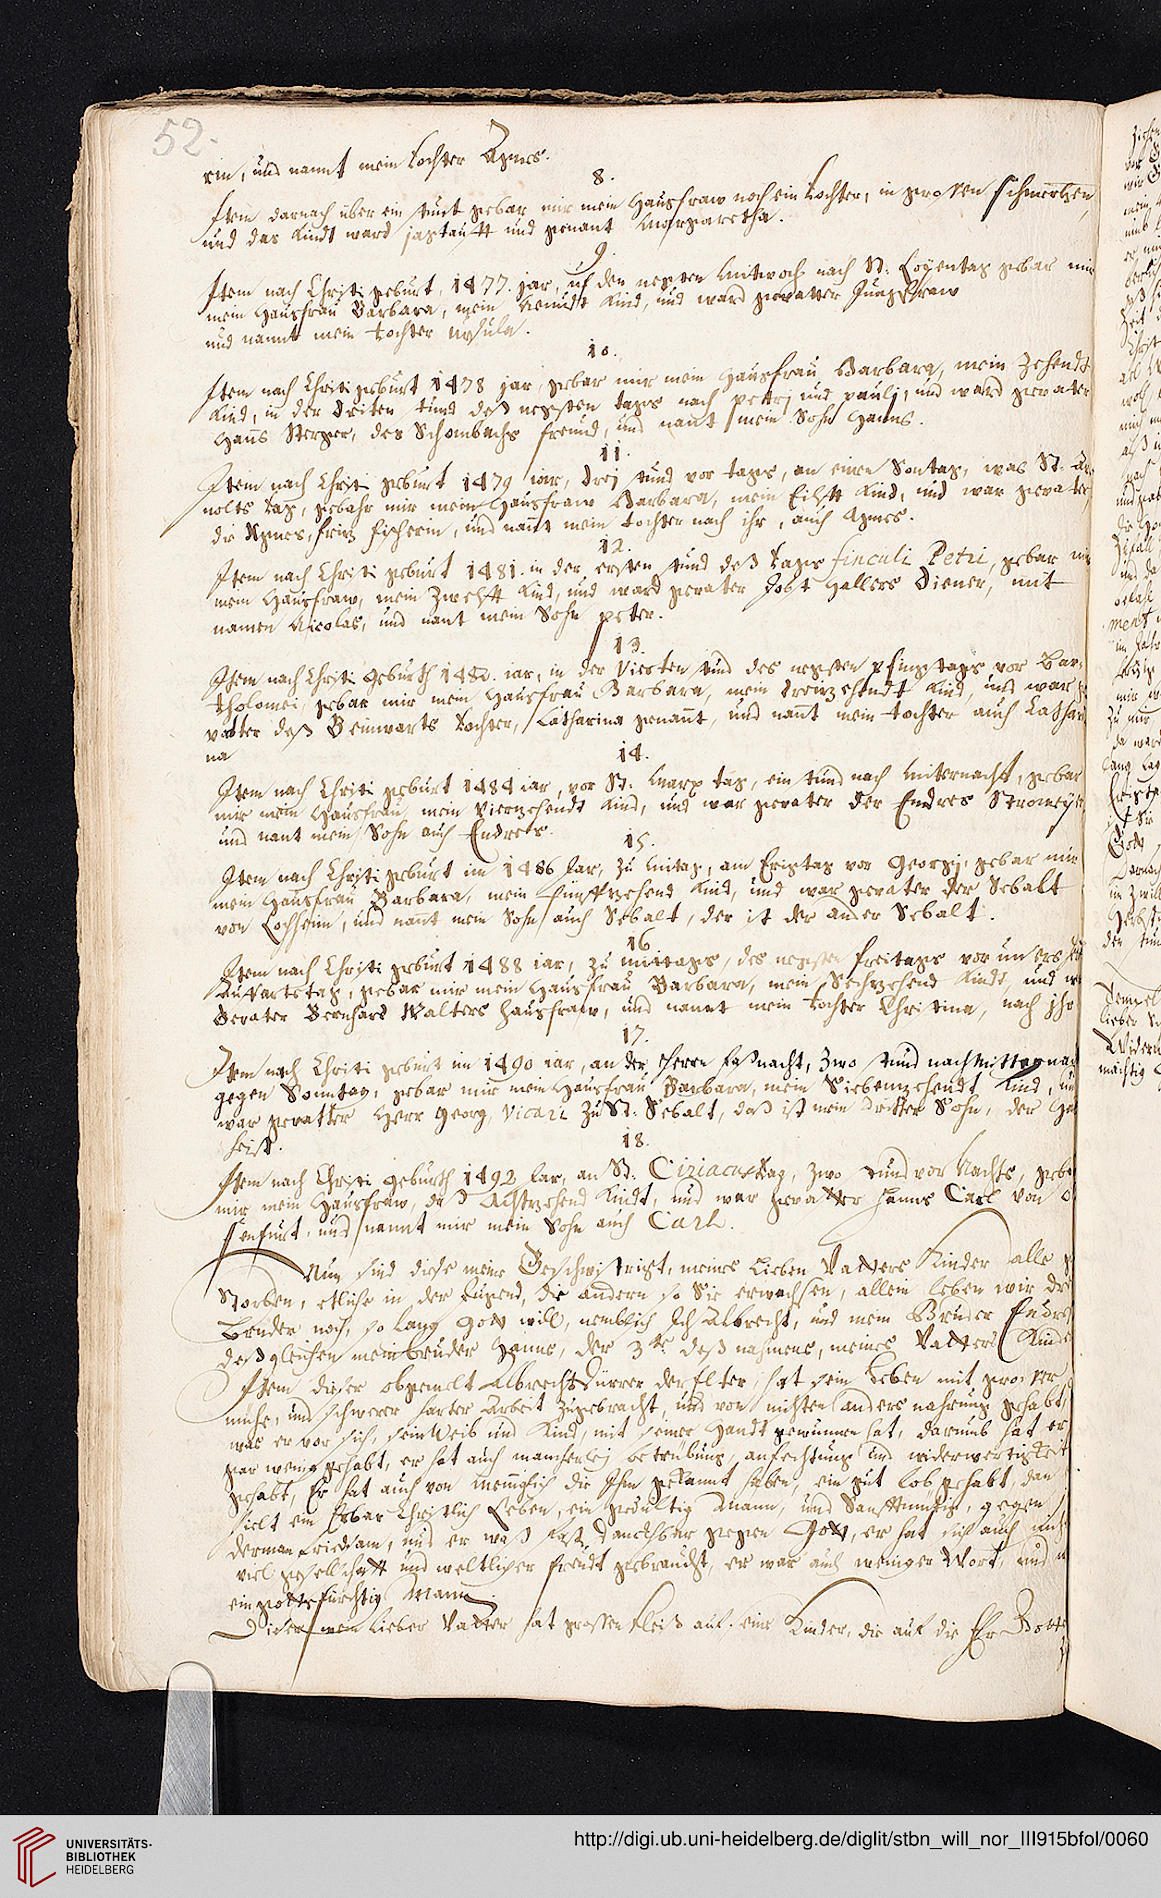 52.
ein, und nannt mein Tochter Agnes.
8.
Item darnach über ein stunt gebar mir mein Haußfraw noch ein Tochter, in grosen schmertzen,
und das Kindt ward jagtaufft und genant Margaretha.
9.
Item nach Christi geburt, 1477. jar, uf den negsten Mitwoch nach St. Loyentag gebar mir
mein Haußfrau Barbara, mein Neundt Kind, und ward gevatter Jungkfraw
und nannt mein Tochter Ursula.
10.
Item nach Christi geburt 1478 jar, gebar mir mein Haußfrau Barbara, mein Zehendt
Kind, in der driten stund deß negsten tages nach petrj und paulj, und ward gevater
Hans Sterger, des Schombachs freund, und nant mein Sohn Hanns.
11.
Item nach Christi geburt 1479 iar, drej stund vor tages, an einen Sontag, was St. Ar-
nolts tag, gebahr mir mein Haußfraw Barbara, mein Eilfft Kind, und war gevater
die Agnes, friz fischerin, und nannt mein Tochter nach ihr, auch Agnes.
12.
Item nach Christi geburt 1481. in der ersten stund deß tages finculi Petri, gebar mir
mein Haußfraw, mein Zwelfft Kind, und ward gevater Jobst Hallers Diener, mit
namen Nicolas, und nant mein Sohn peter.
13.
Ittem nach Christi Geburth 1482. iar, in der Vierten stund des negsten pfingstags vor Bar-
tholomei, gebar mir mein Haußfrau Barbara, mein dreizehendt Kind, und war ge
vatter deß Beinwarts Tochter, Catharina genant, und nant mein Tochter auch Cathari
na
14.
Item nach Christi geburt 1484 iar, vor St. Marx tag, ein stund nach Miternacht, gebar
mir mein Haußfrau, mein vierzehendt Kind, und war gevater der Endres Stromeyer
und nant mein Sohn auch Endres.
15.
Item nach Christi geburt im 1486 Jar, zu Mitag, am Erigtag vor Georgj, gebar mir
mein Haußfrau Barbara, mein Funfftzehend Kind, und war gevater der Sebalt
von Lochheim, und nant mein Sohn auch Sebalt, der ist der ander Sebalt.
16
Item nach Christi geburt 1488 iar, zu mittags, des negsten freitags vor unsers
Auffartstag, gebar mir mein Haußfrau Barbara, mein Sechzehend Kindt, und w
Gevater Bernhart Walters Haußfraw, und nannt mein Tochter Christina, nach jhr
17.
Item nach Christi geburt im 1490 iar, an der Herrn faßnacht, zwo stund nach Mitternacht
gegen Sonntag, gebar mir mein Haußfrau Barbara, mein Siebenzehendt Kind, und
war gevatter Herr Georg, Vicari zu St. Sebalt, daß ist mein dritter Sohn, der Ha
heist.
18.
Item nach Christi Geburth 1492 Jar, an St. Ciriacustag, zwo stund vor Nachts, geba
mir mein Haußfraw, daß Achtzehend Kindt, und war gevatter Hanns Carl von O
senfurt, und nannt mir mein Sohn auch Carl.
Nun sind diese meine Geschwistrigt, meines Lieben Vatters Kinder alle g
storben, etliche in der Jugend, die andern so Sie erwachsen, allein leben wir dre
bruder noch, so lang Gott will, nemblich Ich Albrecht, und mein Bruder Endres
deßgleichen mein bruder Hanns, der 3te deß nahmens, meines Vatters Kind
Item dieser obgemelt Albrecht Dürrer der elter, hat sein Leben mit groser
mühe, und schwerer harter Arbeit zugebracht, und von nichten anders nahrung gehabt,
was er vor sich, sein Weib und Kind, mit seiner Handt gewunnen hat, darumb hat er
gar wenig gehabt, er hat auch mancherlej betrübung, anfechtung und widerwertigkeit
gehabt, Er hat auch von mennglich die Ihn gekannt haben, ein gut lob gehabt, dan
hielt ein Erbar Christlich Leben, ein gedultig Mann, und Sanfftmütig, gegen
derman friedsam, und er waß fast danckbar gegen Gott, er hat sich auch nicht
viel gesellschafft und weltlicher freudt gebraucht, er war auch weniger Wort, und
ein gottsfürchtig Mann
Dieser mein lieber Vatter hat grossen fleiß auf seine Kinder, die auf die Ehr Gottes
UNIVERSITÄTS-
BIBLIOTHEK
HEIDELBERG
http://digi.ub.uni-heidelberg.de/diglit/stbn_will_nor_III915bfol/0060